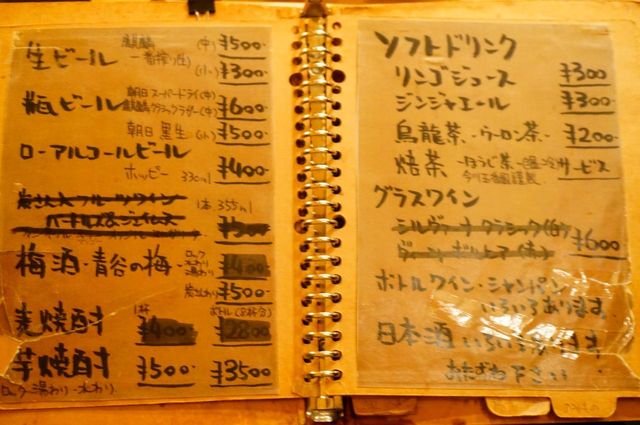 生ビール 麒麟 一番搾り(生) (中) ¥500-
(小) ¥300-
瓶ビール 朝日スーパードライ(中) 麒麟クラシックラガー(中) ¥600-
朝日 黒生 (小) ¥500-
ローアルコールビール
ホッピー 330ml ¥400-
フルーツワイン 1本 355ml
梅酒-青谷の梅- ロック 水わり 湯わり ¥400-
炭酸わり ¥500-
麦焼酎 1杯 ¥400- ボトル(8杯分) ¥2800-
芋焼酎 ¥500- ¥3500
ロック・湯わり・水わり
ソフトドリンク
リンゴジュース ¥300
ジンジャエール ¥300-
烏龍茶-ウーロン茶- ¥200-
焙茶-ほうじ茶- サービス
グラスワイン
シルヴァーナ クラシック(白)
¥600
ボトルワイン・シャンパン
いろいろあります。
日本酒 いろいろあります。
おたずね下さい